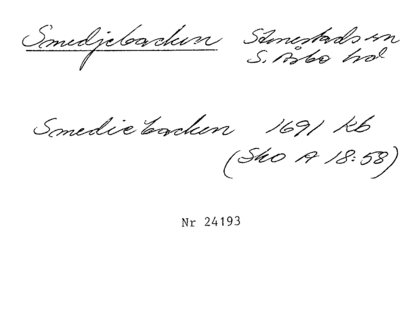 Smedjebacken Stenestads sn
S. Åsbo hd
Smediebacken 1691 Kb
(Sko A 18:58)
Nr 24193